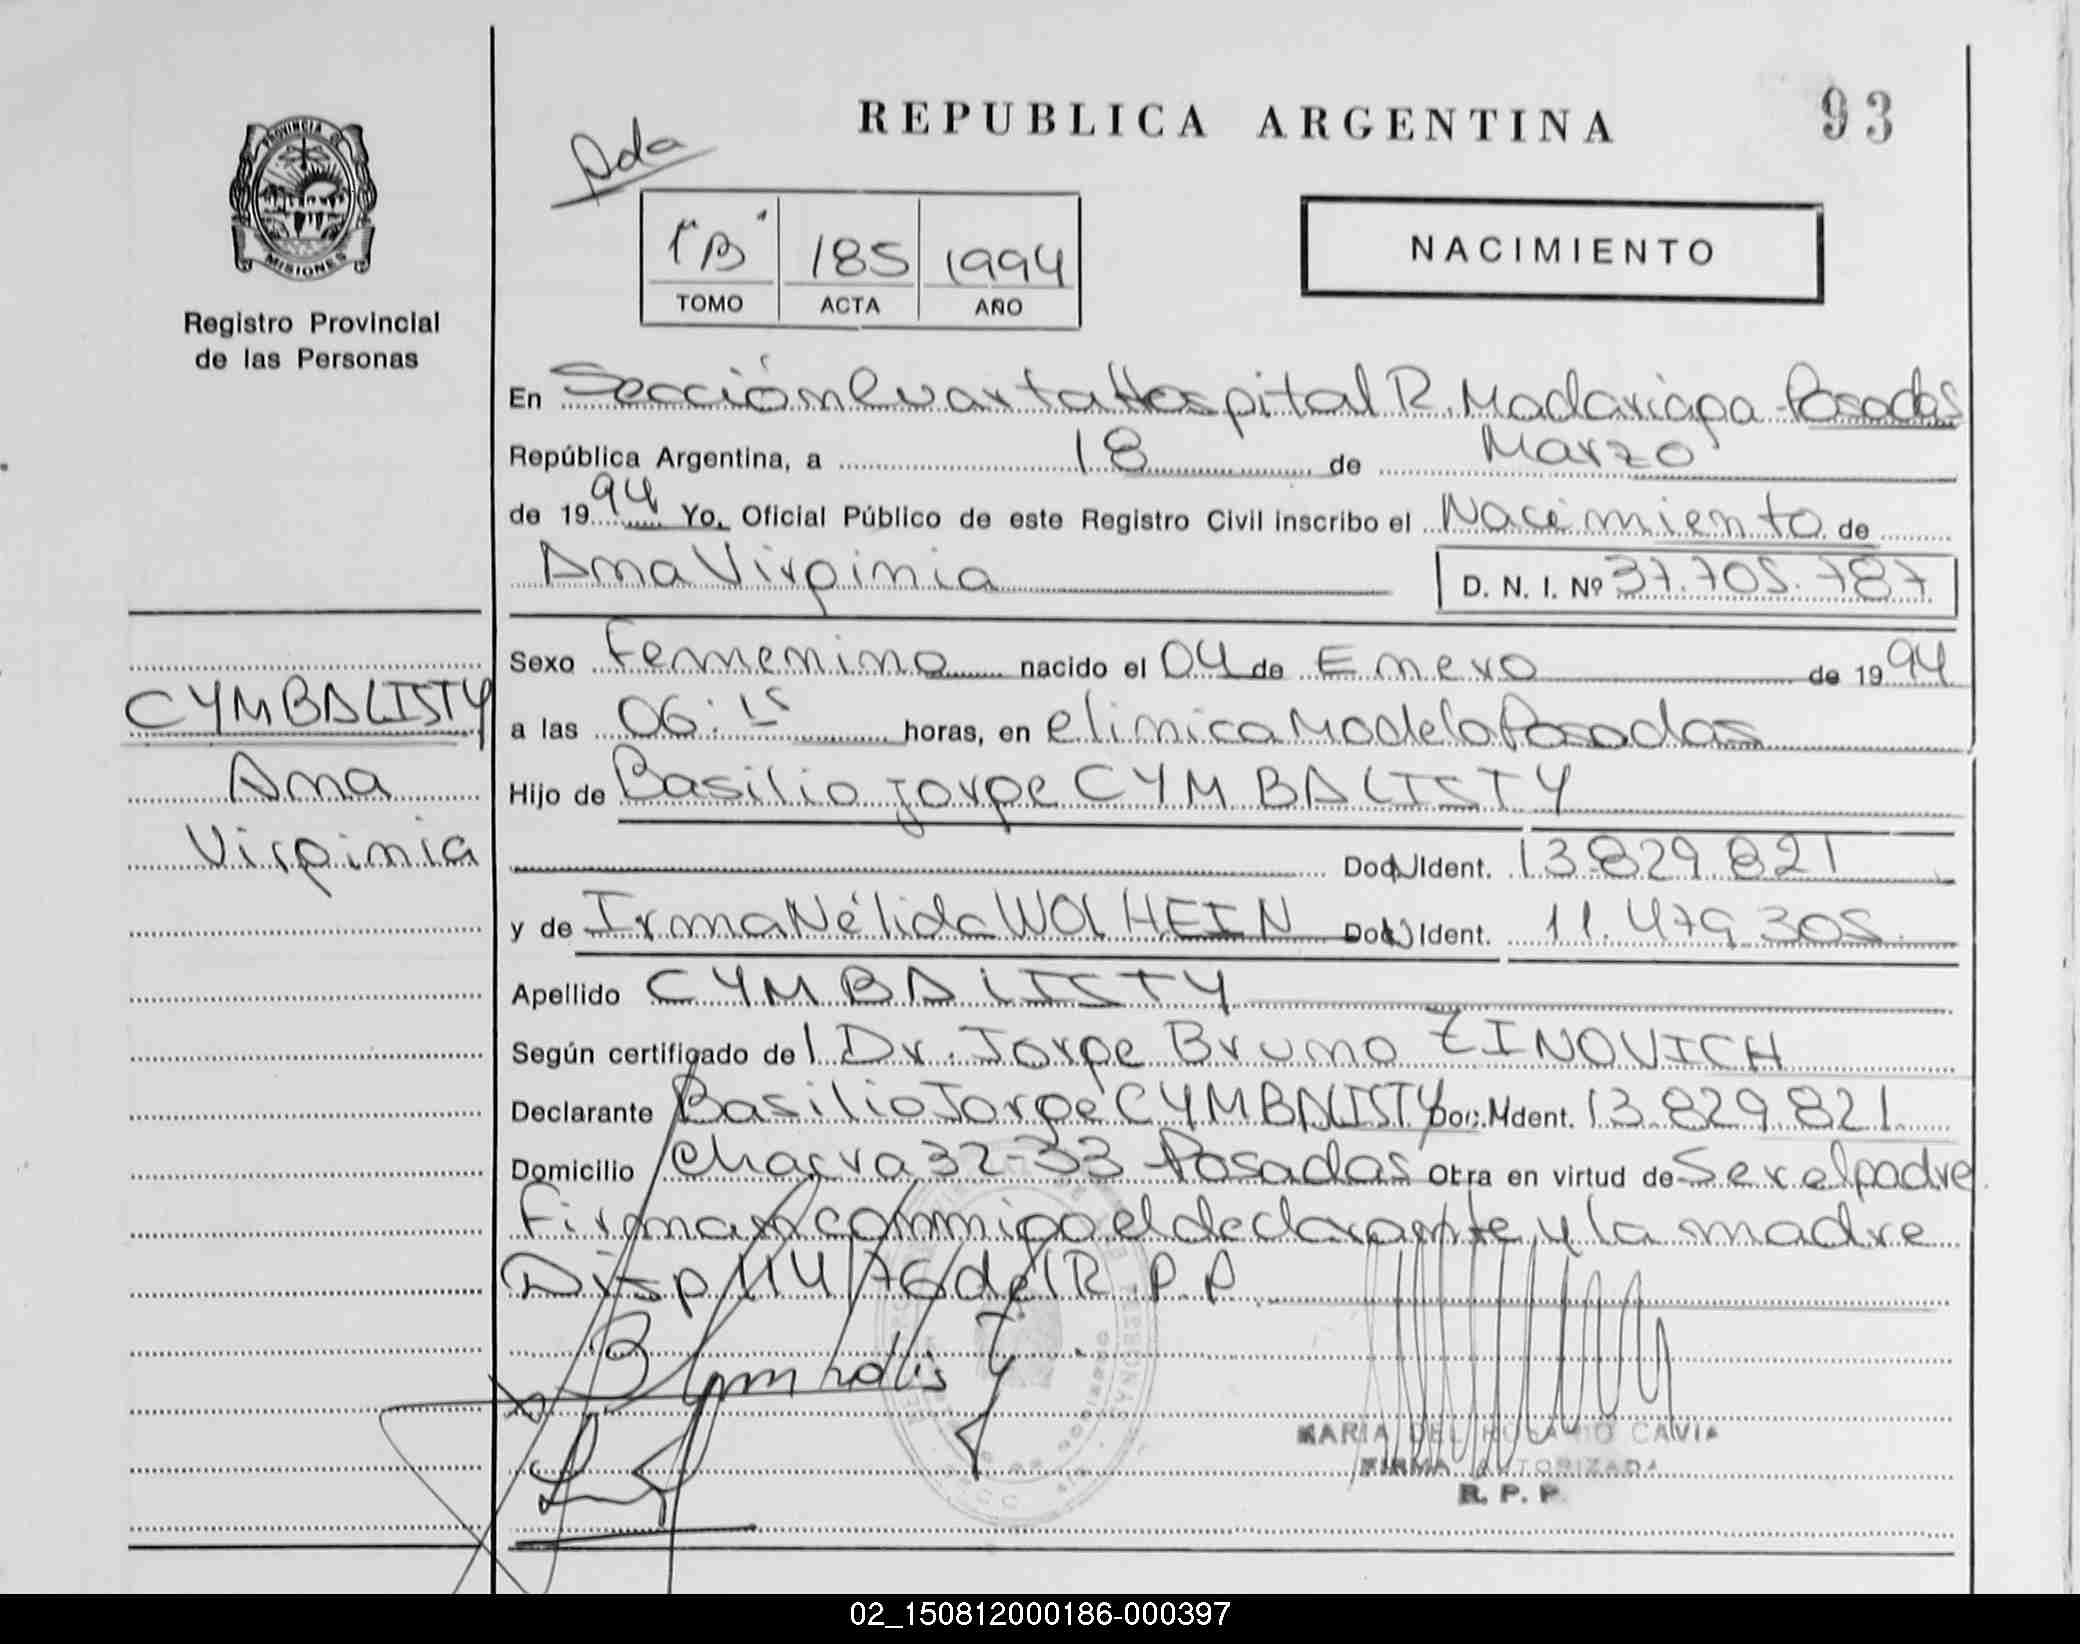 REPUBLICA ARGENTINA
93
Ada
PROVINCIA DE
MISIONES
Registro Provincial
de las Personas
1º "B" 185 1994
TOMO ACTA AÑO
NACIMIENTO
En Sección Cuarta Hospital R. Madariaga - Posadas
República Argentina, a 18 de Marzo
de 1994 Yo, Oficial Público de este Registro Civil inscribo el Nacimiento de
Ana Virginia D. N. I. Nº 37.705.787
Sexo Femenino nacido el 04 de Enero de 1994
CYMBALISTY
Ana
Virginia
a las 06:15 horas, en Clinica Modelo Posadas
Hijo de Basilio Jorge CYMBALISTY
Doc. Ident. 13.829.821
y de Irma Nélida WOLHEIN Doc. Ident. 11.479.305
Apellido CYMBALISTY
Según certificado del Dr. Jorge Bruno ZINOVICH
Declarante Basilio Jorge CYMBALISTY Doc. Ident. 13.829.821
Domicilio Chacra 32-33 Posadas Obra en virtud de Ser el padre
Firman conmigo el declarante y la madre
Disp 114/76 del R.P.P.
MARIA DEL ROSARIO CAVIA
FIRMA AUTORIZADA
R. P. P.
02_150812000186-000397